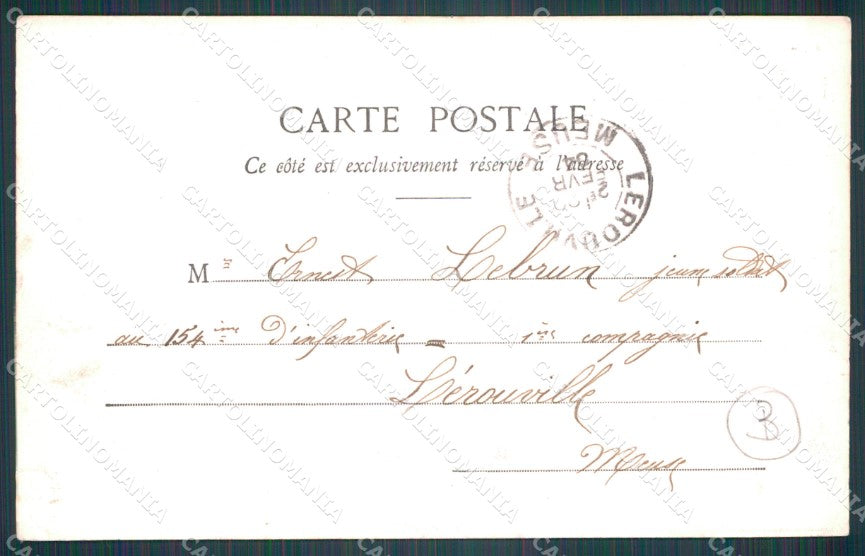 CARTE POSTALE
Ce côté est exclusivement réservé à l'adresse
LEROUVILLE
MEUSE
2e
FEVR
04
Mr Ernest Lebrun jeune soldat
au 154ime d'infanterie = 1ère compagnie
Lérouville
Meuse
CARTOLINOMANIA